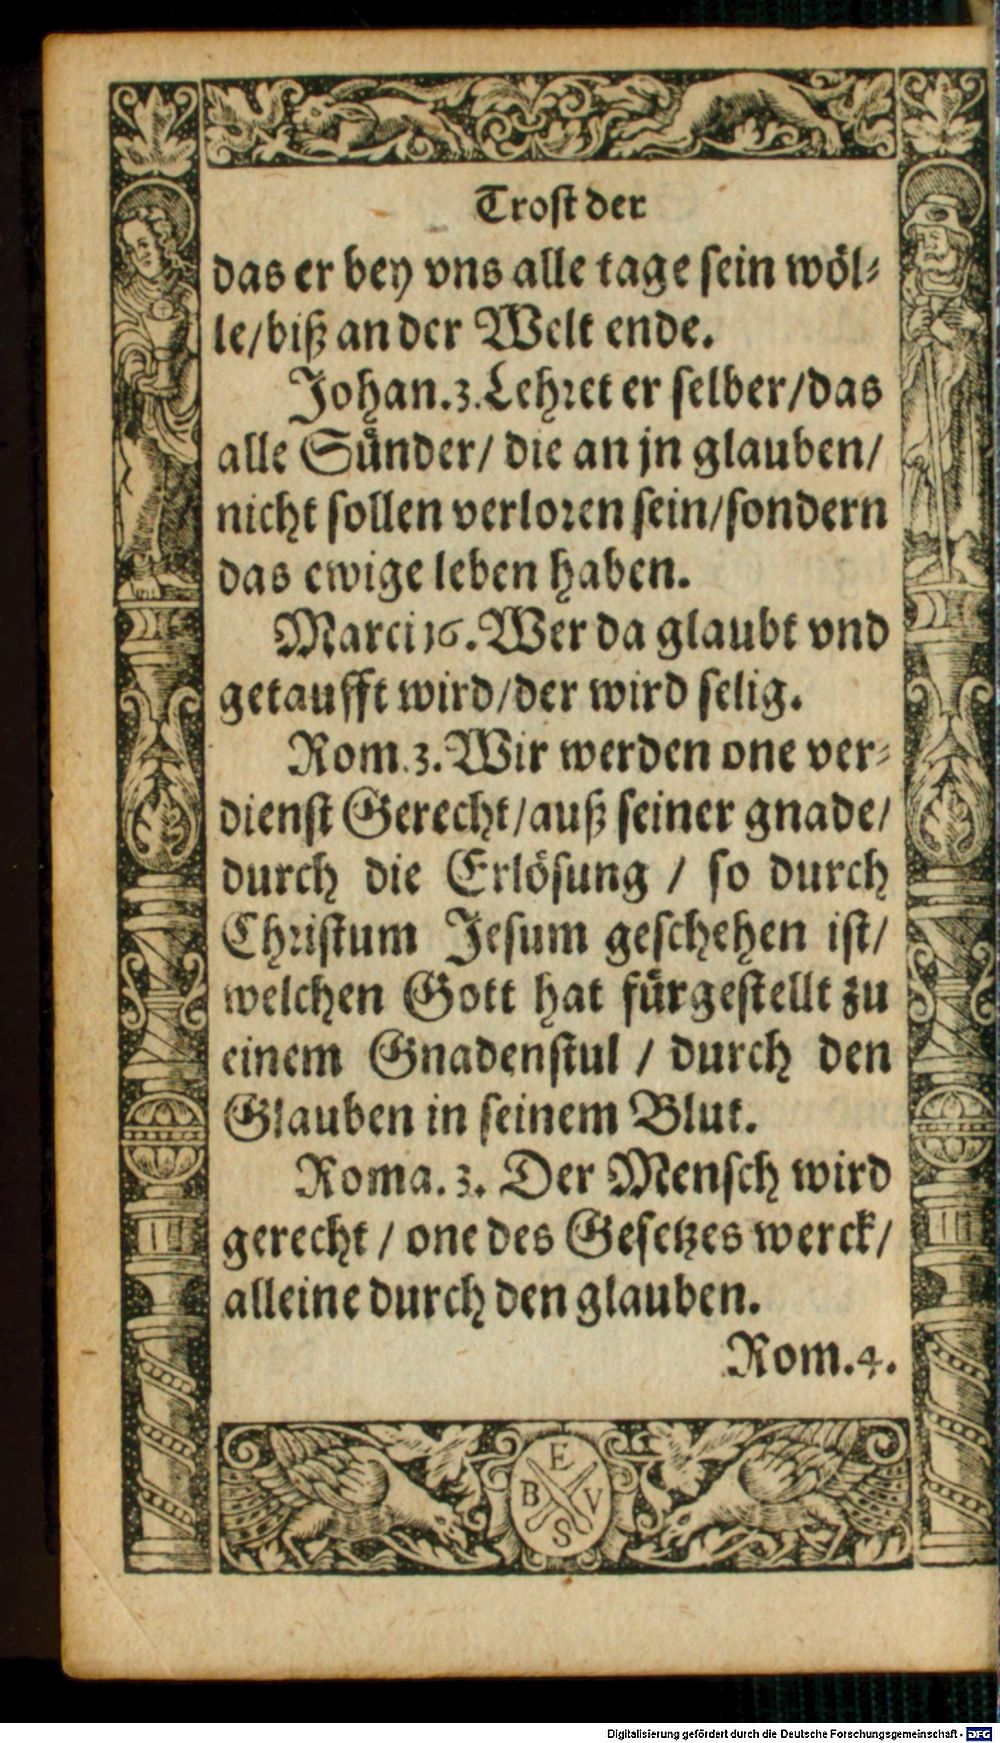 Trost der
das er bey vns alle tage sein wöl⸗
le/biß an der Welt ende.
Johan.3.Lehret er selber/das
alle Sünder/ die an jn glauben/
nicht sollen verloren sein/sondern
das ewige leben haben.
Marci 16.Wer da glaubt vnd
getaufft wird/der wird selig.
Rom.3.Wir werden one ver⸗
dienst Gerecht/auß seiner gnade/
durch die Erlösung / so durch
Christum Jesum geschehen ist/
welchen Gott hat fürgestellt zu
einem Gnadenstul / durch den
Glauben in seinem Blut.
Roma. 3. Der Mensch wird
gerecht / one des Gesetzes werck/
alleine durch den glauben.
Rom.4.
E
B V
S
Digitalisierung gefördert durch die Deutsche Forschungsgemeinschaft - DFG